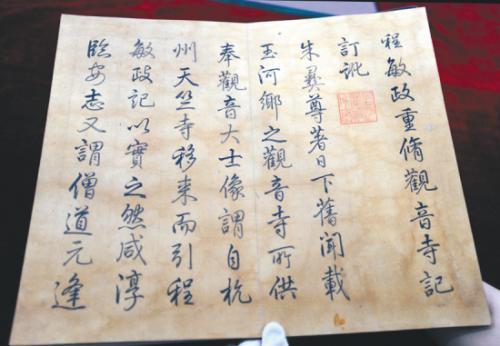 程敏政重脩觀音寺記
訂訛
朱彝尊著日下舊聞載
玉河鄉之觀音寺所供
奉觀音大士像謂自杭
州天竺寺移来而引程
敏政記以實之然咸淳
臨安志又謂僧道元逢